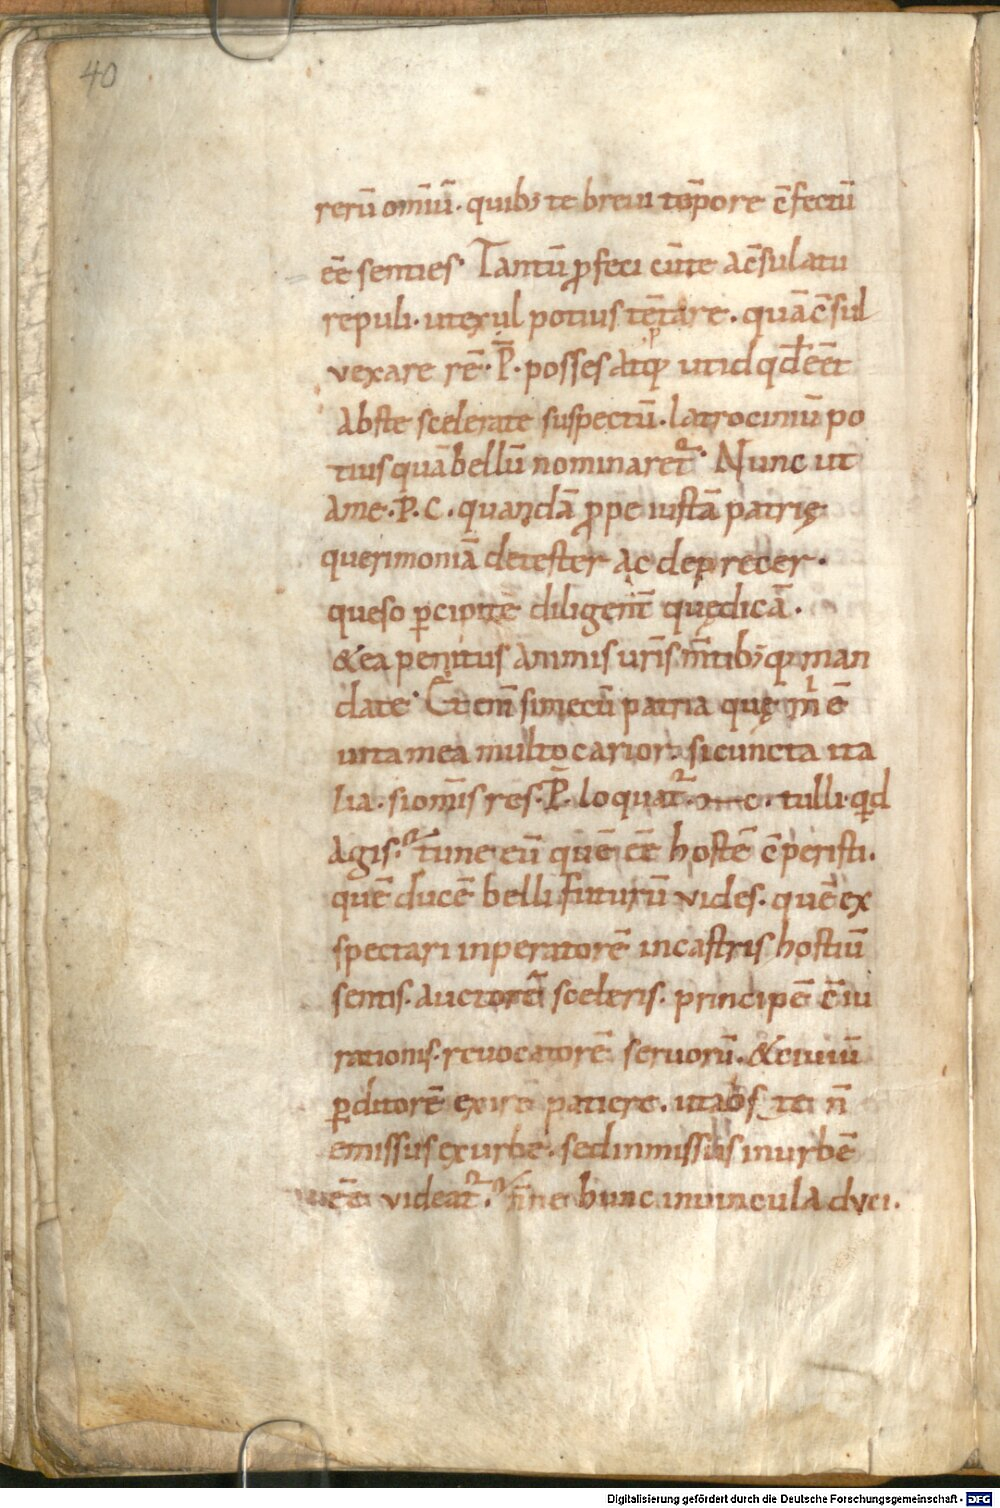 40
rerū omīū. quib; te breui tēpore c̄fectū
eē senties. Tantū ꝓfeci cūte ac̄sulatu
repuli. utexul potius tētare. quāc̄sul
vexare rē. P̄. posses atq; utid qđ eēt
abste scelerate susceptū. latrociniū po
tiusquābellū nominaret᷑. Nunc ut
ame. P. C. quandā ꝓpe iustā patrię
querimoniā detester ac deprecer.
queso ꝑcipitē diligent̄ quędicā.
&ea penitus animis ur̄is m̄tib;q; man
date. Et eni̅ simecū patria quę m̄ ē
uita mea multo carior. sicuncta ita
lia. siom̄is res. P̄. loquat᷑. m c. tulli. qd
agis. tune eū quē eē hostē c̄peristi.
quē ducē belli futurū vides. quē ex
spectari inperatorē incastris hostiū
sentis. auctorē sceleris. principē c̄iu
rationis. reuocatorē seruorū. &ciuiū
ꝑditorē exire patiere. utabs te n̄
emissus exurbe. sedinmissus inurbē
eē videat᷑. n̄ne hunc inuincula duci.
Digitalisierung gefördert durch die Deutsche Forschungsgemeinschaft - DFG